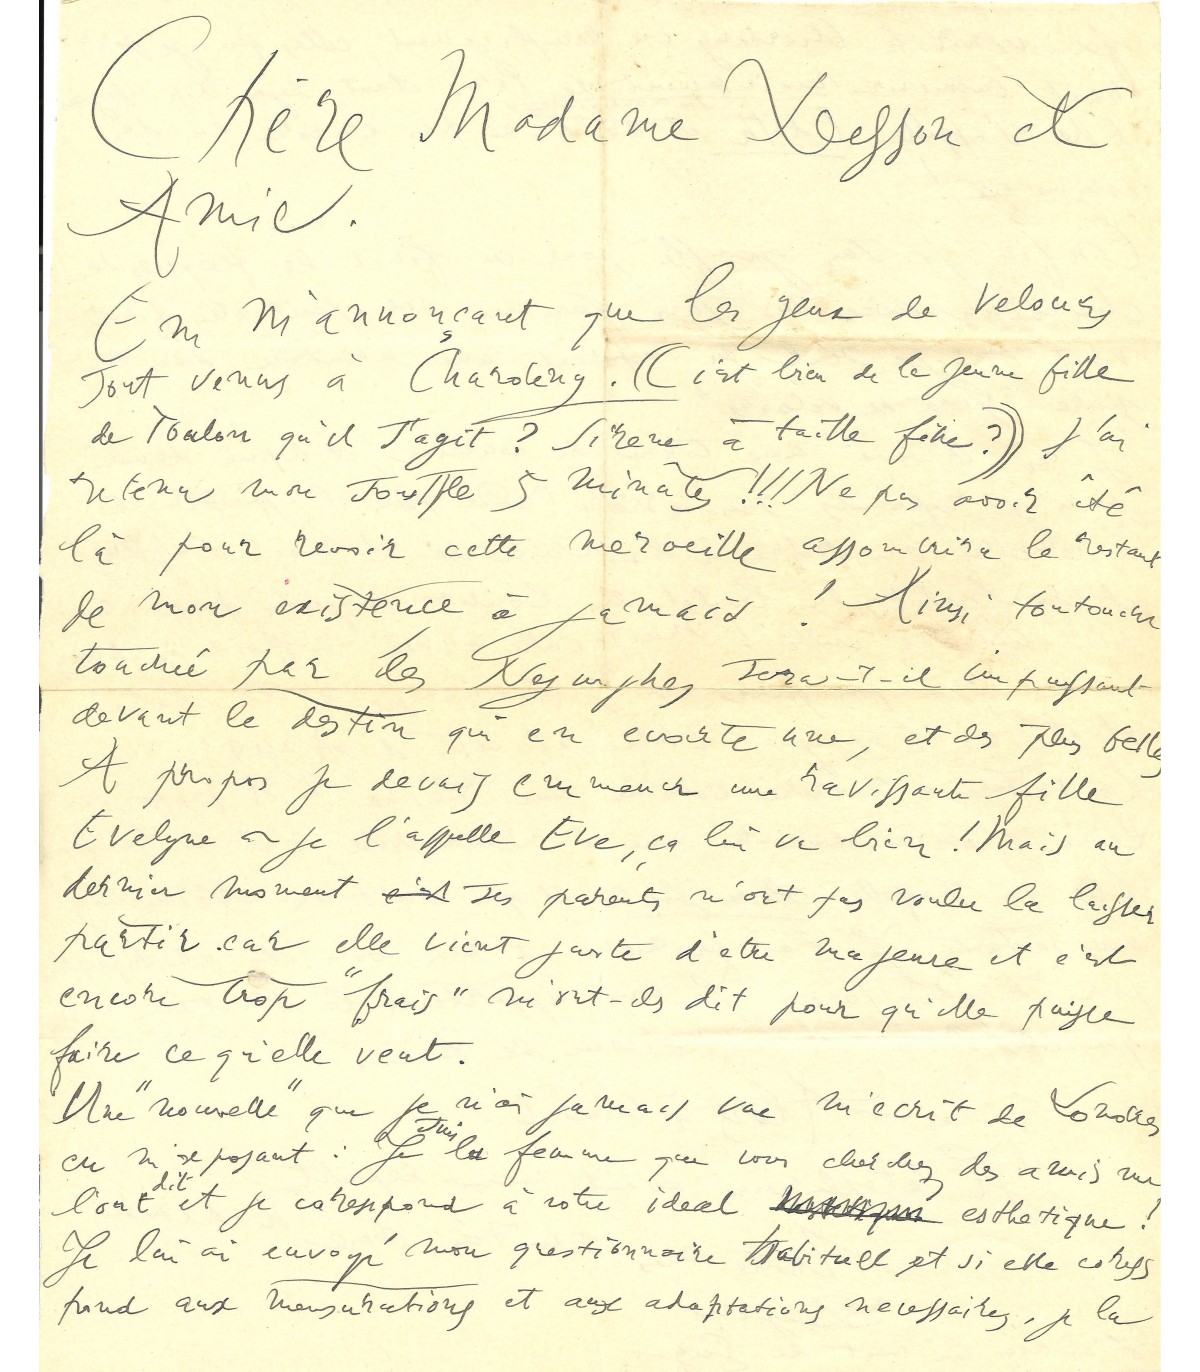 Chère Madame Lesson et
Amie.
En m'annonçant que les yeux de velours
sont venus à . (C'est bien de la jeune fille
de Toulon qu'il s'agit ? Sirene à taille fine ?) J'ai
retenu mon souffle 5 minutes !!! Ne pas avoir été
là pour revoir cette merveille assombrira le restant
de mon existence à jamais ! Ainsi
touché par les Nymphes sera-t-il impuissant
devant le destin qui en ecarte une, et des plus belles
A propos je devais emmener une ravissante fille
Evelyne je l'appelle Eve, ça lui va bien ! Mais au
dernier moment c'est ses parents n'ont pas voulu la laisser
partir car elle vient juste d'etre majeure et c'est
encore trop "frais" m'ont-ils dit pour qu'elle puisse
faire ce qu'elle veut.
Une "nouvelle" que je n'ai jamais vue m'ecrit de Londres
en me posant : Je suis la femme que vous cherchez des amis me
l'ont dit et je corespond à votre ideal esthetique !
Je lui ai envoyé mon questionnaire Habituel et si elle coress
pond aux mensurations et aux adaptations necessaires, je la